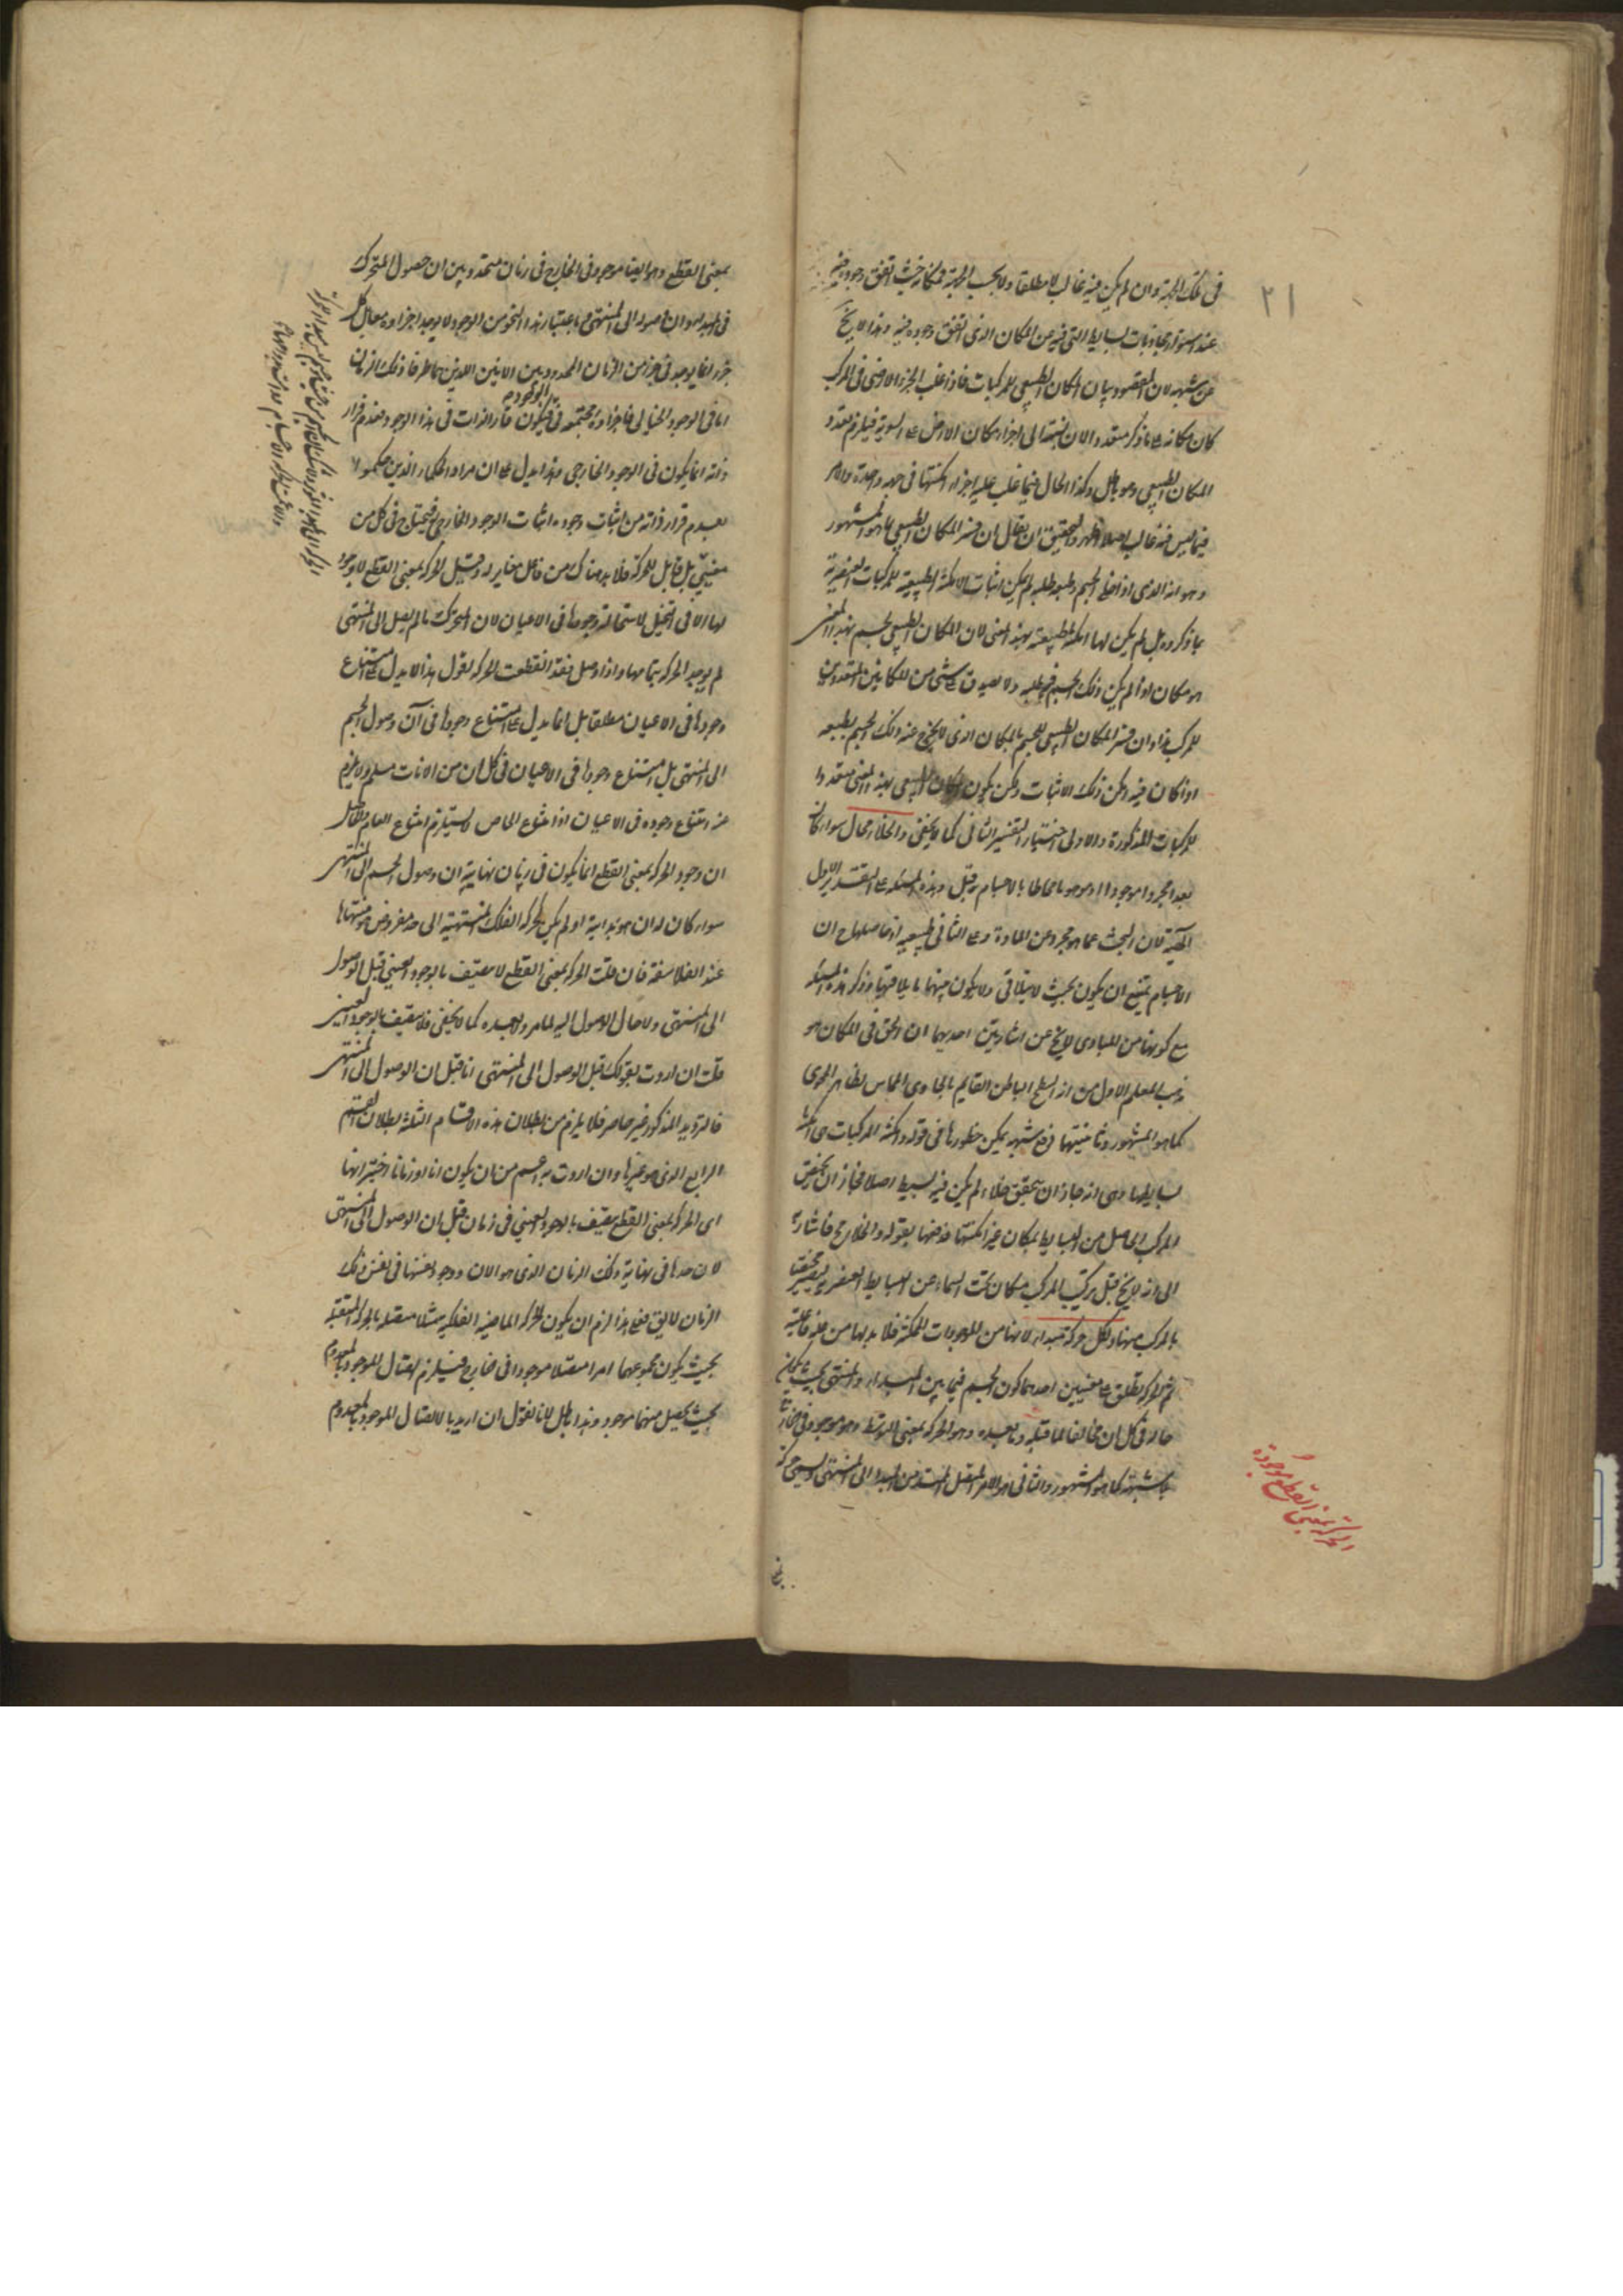 ٢١
في تلك الجهة وان لم يكن فيه غالب لا مطلقا ولا بحسب الجهة فمكانه حيث اتفق وجوده فيه
عند استواء مجاذبات البسايط التي فيه عن المكان الذي اتفق وجوده فيه وهذا لا يخ
عن شبهه لان المقصود بيان المكان الطبيعي للمركبات فاذا غلب الجزء الارضي في المركب
كان مكانه على ما ذكر متعددا لان نسبته الى اجزاء مكان الارض على السوية فيلزم تعدد
المكان الطبيعي وهو باطل وكذا الحال فيما غلب عليه اجزاء امكنتها في جهة واحدة والامر
فيما ليس فيه غالب اصلا اظهر والتحقيق ان يقال ان فسر المكان الطبيعي بما هو المشهور
وهو انه الذي اذا خلى الجسم وطبعه طلبه لم يكن اثبات الامكنة الطبيعية للمركبات العنصرية
بما ذكروه بل لم يكن لها امكنة طبيعية بهذا المعنى لان المكان الطبيعي لجسم بهذا المعنى
هو مكان اذا لم يكن ذلك الجسم فيه طلبه ولا يصدق على شيء من المكانين المتعددين
للمركب هذا وان فسر المكان الطبيعي للجسم بالمكان الذي لا يخرج عنه ذلك الجسم بطبعه
اذا كان فيه امكن ذلك الاثبات ولكن يكون المكان الطبيعي بهذا المعنى متعددا
للمركبات المذكورة والاولى اختيار التفسير الثاني كما لا يخفى والخلاء محال سواء كان
بعدا مجردا موجودا او موهوما محاطا بالاجسام قبل وهذه المسئلة على التقدير الاول
الهية لان البحث عما هو مجرد عن المادة وعلى الثاني طبيعية اذ حاصلها ح ان
الاجسام يمتنع ان يكون بحيث لا يتلاقى ولا يكون بينهما ما يلاقيها وذكر هذه المسئلة
مع كونها من المبادي لا يخ عن اشارتين احديهما ان الحق في المكان هو
مذهب المعلم الاول من انه السطح الباطن القايم بالحاوي المماس لظاهر المحوي
كما هو المشهور وثانيتهما دفع شبهة يمكن خطورها في قوله وامكنة المركبات هي امكنة
بسايطها وهي انه جاز ان يتحقق خلاء لم يكن فيه بسيط اصلا فجاز ان يختص
المركب الحاصل من البسايط بمكان غير امكنتها فدفعها بقوله والخلاء مح فاشارة
الى انه لا يخ قبل تركيب المركب مكان تحت السماء عن البسايط العنصرية ليصير مختصا
بالمركب منها ولكل حركة مبداء لانها من الموجودات الممكنة فلا بد لها من علة فاعلية
ثم الحركة تطلق على معنيين احدهما كون الجسم فيما بين المبداء والمنتهى بحيث يكون
حاله في كل ان مخالفا لما قبله وما بعده وهو الحركة بمعنى التوسط وهو موجود في الخارج
بلا شبهة كما هو المشهور والثاني هو الامر المتصل الممتد من المبداء الى المنتهى ويسمى حركة
الحركة بمعنى القطع موجودة
بمعنى القطع وهو ايضا موجود في الخارج في زمان متحدد بين ان حصول المتحرك
في المبدء وان وصوله الى المنتهى وباعتبار هذا النحو من الوجود لا يوجد اجزاؤه معا بل كل
جزء انما يوجد في جزء من الزمان المحدود بين الانين اللذين هما طرفا ذلك الزمان
اما في الوجود الخيالي فاجزاؤه مجتمعة فيكون قار الذات في هذا الوجود وعدم قرار
ذاته انما يكون في الوجود الخارجي وهذا يدل على ان مراد الحكماء الذين حكموا
بعدم قرار ذاته من اثبات وجوده اثبات الوجود الخارجي فيحتاج في كل من
معنييه بل قابل للحركة فلا بد هناك من فاعل مغاير له وقيل الحركة بمعنى القطع لا وجود
لها الا في التخيل لاستحالة وجودها في الاعيان لان المتحرك ما لم يصل الى المنتهى
لم يوجد الحركة بتمامها واذا وصل فقد انقطعت الحركة نقول هذا لا يدل على امتناع
وجودها في الاعيان مطلقا بل انما يدل على امتناع وجودها في آن وصول الجسم
الى المنتهى بل امتناع وجودها في الاعيان في كل ان من الانات مسلم ولا يلزم
منه امتناع وجوده في الاعيان اذ امتناع الخاص لا يستلزم امتناع العام والحاصل
ان وجود الحركة بمعنى القطع انما يكون في زمان نهايته ان وصول الجسم الى المنتهى
سواء كان له ان هو بدايته او لم يكن كحركة الفلك المنتهية الى حد مفروض هو منتهاها
عند الفلاسفة فان قلت الحركة بمعنى القطع لا يتصف بالوجود العيني قبل الوصول
الى المنتهى ولا حال الوصول اليه لما مر ولا بعده كما لا يخفى فلا يتصف بالوجود العيني
قلت ان اردت بقولك قبل الوصول الى المنتهى انا قبل ان الوصول الى المنتهى
فالترديد المذكور غير حاصر فلا يلزم من بطلان هذه الاقسام الثلثة بطلان القسم
الرابع الذي هو غيرها وان اردت به اعم من ان يكون انا او زمانا اخترنا انها
اي الحركة بمعنى القطع يتصف بالوجود العيني في زمان قبل ان الوصول الى المنتهى
لان حدها في نهاية ذلك الزمان الذي هو الان ووجود نفسها في نفس ذلك
الزمان لا يق فعلى هذا لزم ان يكون الحركة الماضية الفلكية مثلا متصلة بالحركة المستقبلة
بحيث يكون مجموعهما امرا متصلا موجودا في الخارج فيلزم اتصال الموجود بالمعدوم
بحيث يحصل منهما موجود وهذا باطل لانا نقول ان اريد بالاتصال الموجود بالمعدوم